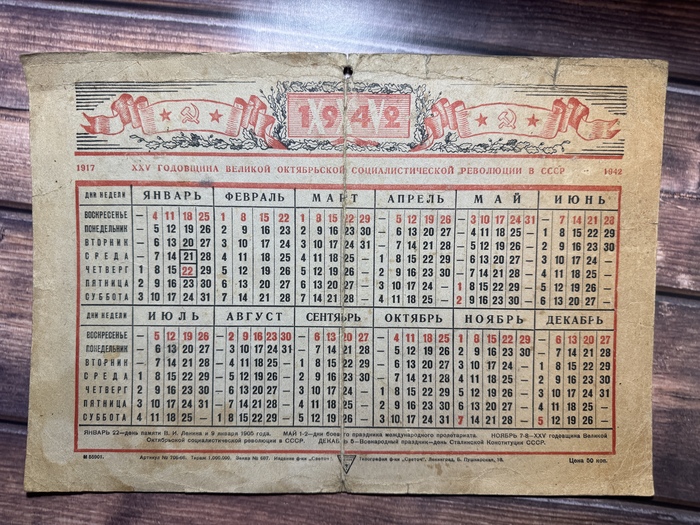 1942
1917 XXV ГОДОВЩИНА ВЕЛИКОЙ ОКТЯБРЬСКОЙ СОЦИАЛИСТИЧЕСКОЙ РЕВОЛЮЦИИ В СССР 1942
ДНИ НЕДЕЛИ ЯНВАРЬ ФЕВРАЛЬ МАРТ АПРЕЛЬ МАЙ ИЮНЬ
ВОСКРЕСЕНЬЕ – 4 11 18 25 1 8 15 22 1 8 15 22 29 – 5 12 19 26 – 3 10 17 24 31 – 7 14 21 28
ПОНЕДЕЛЬНИК – 5 12 19 26 2 9 16 23 2 9 16 23 30 – 6 13 20 27 – 4 11 18 25 – 1 8 15 22 29
ВТОРНИК – 6 13 20 27 3 10 17 24 3 10 17 24 31 – 7 14 21 28 – 5 12 19 26 – 2 9 16 23 30
СРЕДА – 7 14 21 28 4 11 18 25 4 11 18 25 – 1 8 15 22 29 – 6 13 20 27 – 3 10 17 24 –
ЧЕТВЕРГ 1 8 15 22 29 5 12 19 26 5 12 19 26 – 2 9 16 23 30 – 7 14 21 28 – 4 11 18 25 –
ПЯТНИЦА 2 9 16 23 30 6 13 20 27 6 13 20 27 – 3 10 17 24 – 1 8 15 22 29 – 5 12 19 26 –
СУББОТА 3 10 17 24 31 7 14 21 28 7 14 21 28 – 4 11 18 25 – 2 9 16 23 30 – 6 13 20 27 –
ДНИ НЕДЕЛИ ИЮЛЬ АВГУСТ СЕНТЯБРЬ ОКТЯБРЬ НОЯБРЬ ДЕКАБРЬ
ВОСКРЕСЕНЬЕ – 5 12 19 26 – 2 9 16 23 30 – 6 13 20 27 – 4 11 18 25 1 8 15 22 29 – 6 13 20 27
ПОНЕДЕЛЬНИК – 6 13 20 27 – 3 10 17 24 31 – 7 14 21 28 – 5 12 19 26 2 9 16 23 30 – 7 14 21 28
ВТОРНИК – 7 14 21 28 – 4 11 18 25 – 1 8 15 22 29 – 6 13 20 27 3 10 17 24 – 1 8 15 22 29
СРЕДА 1 8 15 22 29 – 5 12 19 26 – 2 9 16 23 30 – 7 14 21 28 4 11 18 25 – 2 9 16 23 30
ЧЕТВЕРГ 2 9 16 23 30 – 6 13 20 27 – 3 10 17 24 – 1 8 15 22 29 5 12 19 26 – 3 10 17 24 31
ПЯТНИЦА 3 10 17 24 31 – 7 14 21 28 – 4 11 18 25 – 2 9 16 23 30 6 13 20 27 – 4 11 18 25 –
СУББОТА 4 11 18 25 – 1 8 15 22 29 – 5 12 19 26 – 3 10 17 24 31 7 14 21 28 – 5 12 19 26 –
ЯНВАРЬ 22—день памяти В. И. Ленина и 9 января 1905 года. МАЙ 1-2—дни боевого праздника международного пролетариата. НОЯБРЬ 7-8—XXV годовщина Великой
Октябрьской социалистической революции в СССР. ДЕКАБРЬ 5—Всенародный праздник—день Сталинской Конституции СССР.
Тираж 1.000.000. Заказ № 687. Издание ф-ки „Светоч" Типография ф-ки „Светоч", Ленинград, Б. Пушкарская, 10. Цена 50 коп.